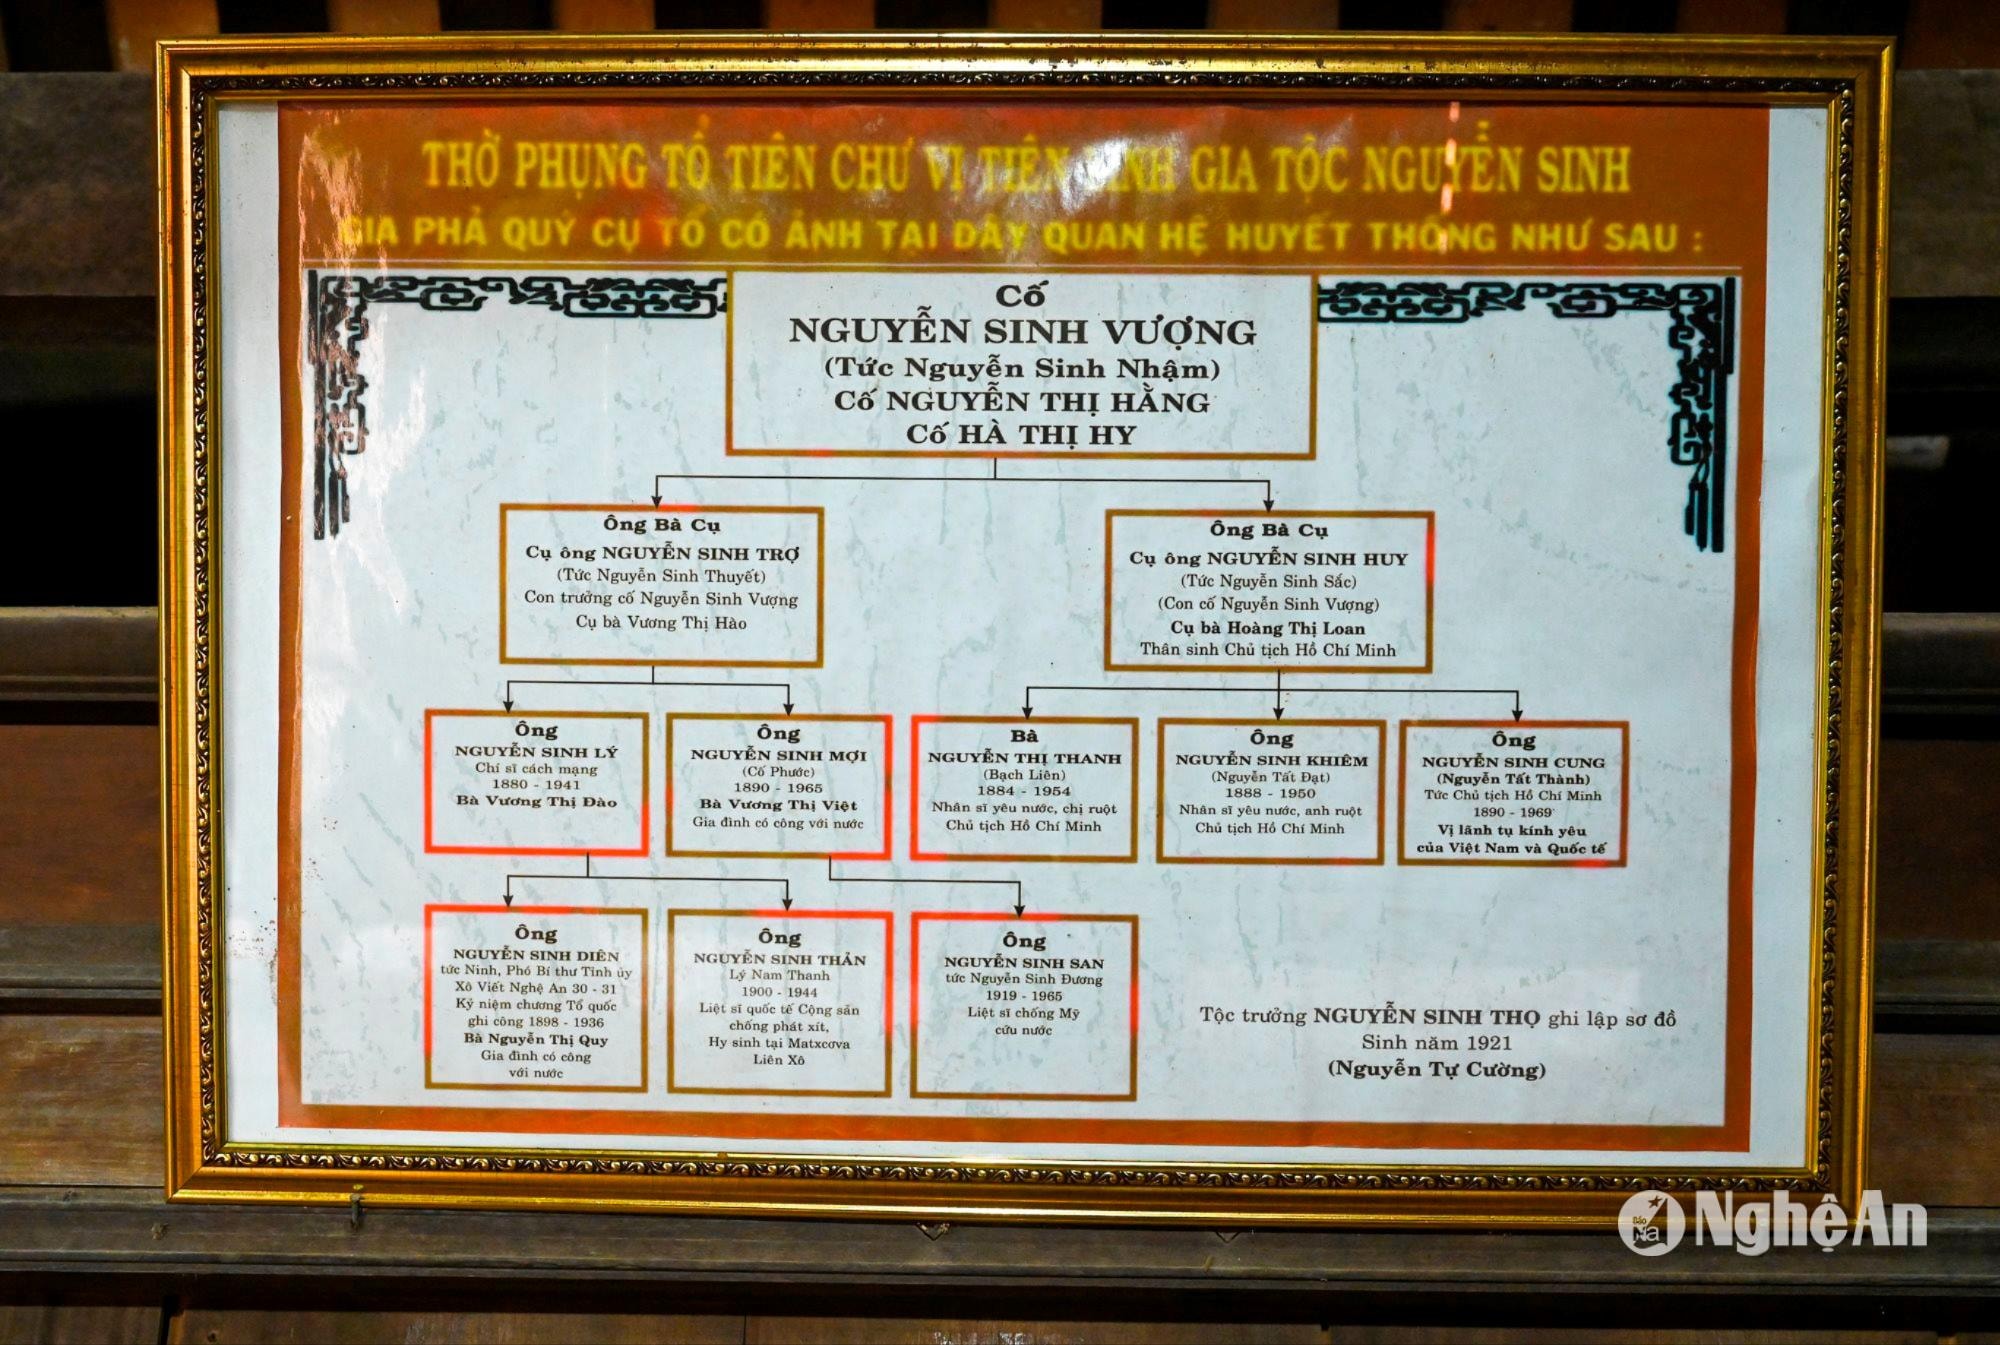 THỜ PHỤNG TỔ TIÊN CHƯ VỊ TIÊN LINH GIA TỘC NGUYỄN SINH
GIA PHẢ QUÝ CỤ TỔ CÓ ẢNH TẠI ĐÂY QUAN HỆ HUYẾT THỐNG NHƯ SAU :
Cố
NGUYỄN SINH VƯỢNG
(Tức Nguyễn Sinh Nhậm)
Cố NGUYỄN THỊ HẰNG
Cố HÀ THỊ HY
Ông Bà Cụ
Cụ ông NGUYỄN SINH TRỢ
(Tức Nguyễn Sinh Thuyết)
Con trưởng cố Nguyễn Sinh Vượng
Cụ bà Vương Thị Hào
Ông Bà Cụ
Cụ ông NGUYỄN SINH HUY
(Tức Nguyễn Sinh Sắc)
(Con cố Nguyễn Sinh Vượng)
Cụ bà Hoàng Thị Loan
Thân sinh Chủ tịch Hồ Chí Minh
Ông
NGUYỄN SINH LÝ
Chí sĩ cách mạng
1880 - 1941
Bà Vương Thị Đào
Ông
NGUYỄN SINH MỢI
(Cố Phước)
1890 - 1965
Bà Vương Thị Việt
Gia đình có công với nước
Bà
NGUYỄN THỊ THANH
(Bạch Liên)
1884 - 1954
Nhân sĩ yêu nước, chị ruột
Chủ tịch Hồ Chí Minh
Ông
NGUYỄN SINH KHIÊM
(Nguyễn Tất Đạt)
1888 - 1950
Nhân sĩ yêu nước, anh ruột
Chủ tịch Hồ Chí Minh
Ông
NGUYỄN SINH CUNG
(Nguyễn Tất Thành)
Tức Chủ tịch Hồ Chí Minh
1890 - 1969
Vị lãnh tụ kính yêu
của Việt Nam và Quốc tế
Ông
NGUYỄN SINH DIÊN
tức Ninh, Phó Bí thư Tỉnh ủy
Xô Viết Nghệ An 30 - 31
Kỷ niệm chương Tổ quốc
ghi công 1898 - 1936
Bà Nguyễn Thị Quy
Gia đình có công
với nước
Ông
NGUYỄN SINH THẢN
Lý Nam Thanh
1900 - 1944
Liệt sĩ quốc tế Cộng sản
chống phát xít,
Hy sinh tại Matxcơva
Liên Xô
Ông
NGUYỄN SINH SAN
tức Nguyễn Sinh Đương
1919 - 1965
Liệt sĩ chống Mỹ
cứu nước
Tộc trưởng NGUYỄN SINH THỌ ghi lập sơ đồ
Sinh năm 1921
(Nguyễn Tự Cường)
Báo Na Nghệ An